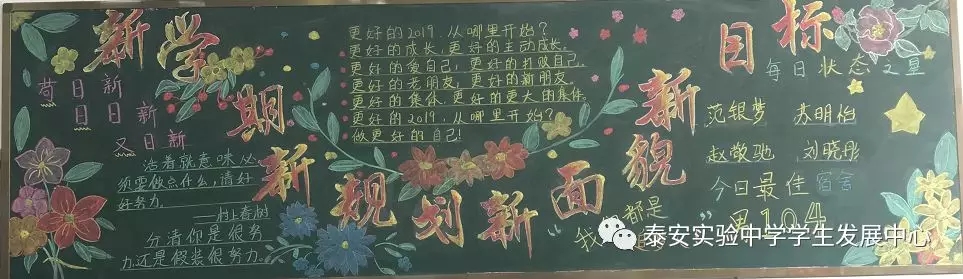 新学期 新规划 新面貌 新目标
苟日新
日日新
又日新
活着就意味必
须要做点什么,请好
好努力
——村上春树
分清你是很努
力还是假装很努力。
更好的2019,从哪里开始?
更好的成长,更好的主动成长.
更好的爱自己,更好的打败自己.
更好的老朋友,更好的新朋友.
更好的集体,更好的更大的集体.
更好的2019,从哪里开始?
做更好的自己!
每日状态之星
范银梦 苏明怡
赵敬驰 刘晓彤
今日最佳宿舍
男104
都是
我
泰安实验中学学生发展中心